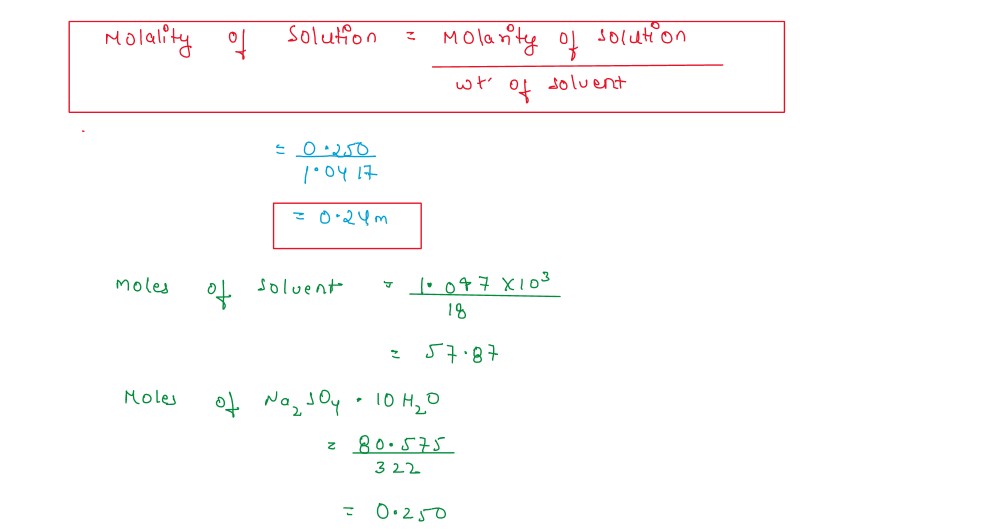 Molality of Solution = Molarity of solution
wt. of solvent
= 0.250
1.0417
= 0.24m
Moles of solvent = 1.047 X 10³
18
= 57.87
Moles of Na₂SO₄ . 10 H₂O
= 80.575
322
= 0.250